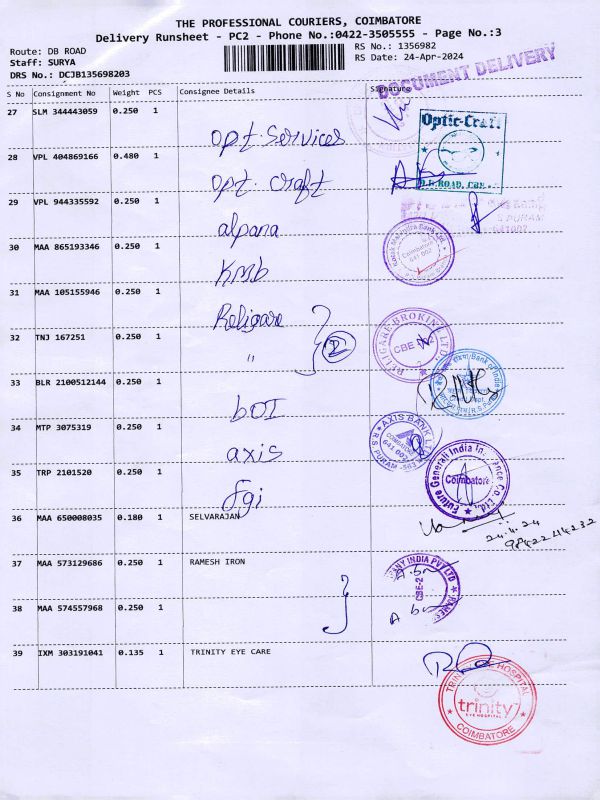 THE PROFESSIONAL COURIERS, COIMBATORE
Delivery Runsheet - PC2 - Phone No.:0422-3505555 - Page No.:3
Route: DB ROAD
RS No.: 1356982
Staff: SURYA
RS Date: 24-Apr-2024
DRS No.: DCJB135698203
DOCUMENT DELIVERY
S No Consignment No Weight PCS Consignee Details Signature
27 SLM 344443059 0.250 1
opt. Services
Optic-Craft
28 VPL 404869166 0.480 1
opt. craft
D.B.ROAD, CBE
29 VPL 944335592 0.250 1
alpana
S PURAM
641002
30 MAA 865193346 0.250 1
kmb
Coimbatore
641 002
31 MAA 105155946 0.250 1
Religare
RELIGARE BROKING LTD.
CBE
32 TNJ 167251 0.250 1
"
2
33 BLR 2100512144 0.250 1
bOI
Bank of India
34 MTP 3075319 0.250 1
axis
AXIS BANK LTD
R S PURAM
35 TRP 2101520 0.250 1
fgi
Future Generali India Insurance Co. Ltd.,
Coimbatore
36 MAA 650008035 0.180 1 SELVARAJAN
24.4.24
37 MAA 573129686 0.250 1 RAMESH IRON
INDIA PVT LTD
CBE-2
38 MAA 574557968 0.250 1
39 IXM 303191041 0.135 1 TRINITY EYE CARE
TRINITY EYE HOSPITAL
trinity
EYE HOSPITAL
COIMBATORE